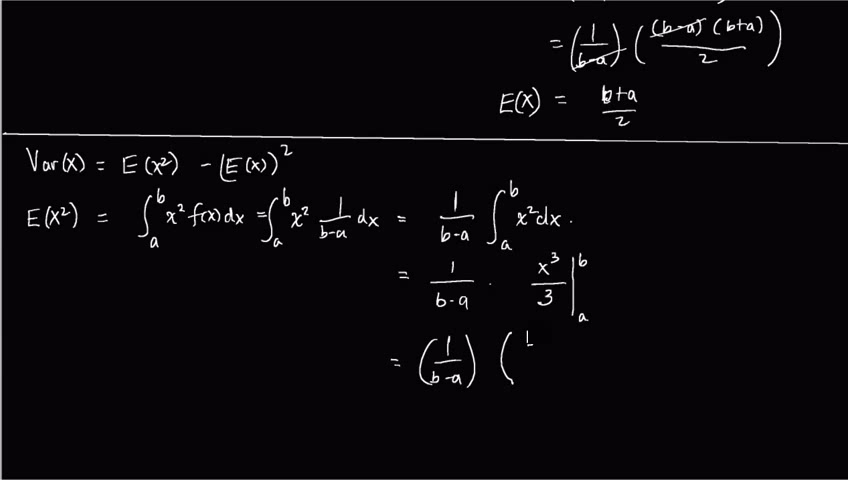 = (1/(b-a)) ((b-a)(b+a)/2)
E(X) = b+a/2
Var(X) = E(X²) - (E(X))²
E(X²) = ∫_a^b x² f(x) dx = ∫_a^b x² 1/(b-a) dx = 1/(b-a) ∫_a^b x² dx.
= 1/(b-a) · x³/3 |_a^b
= (1/(b-a)) (